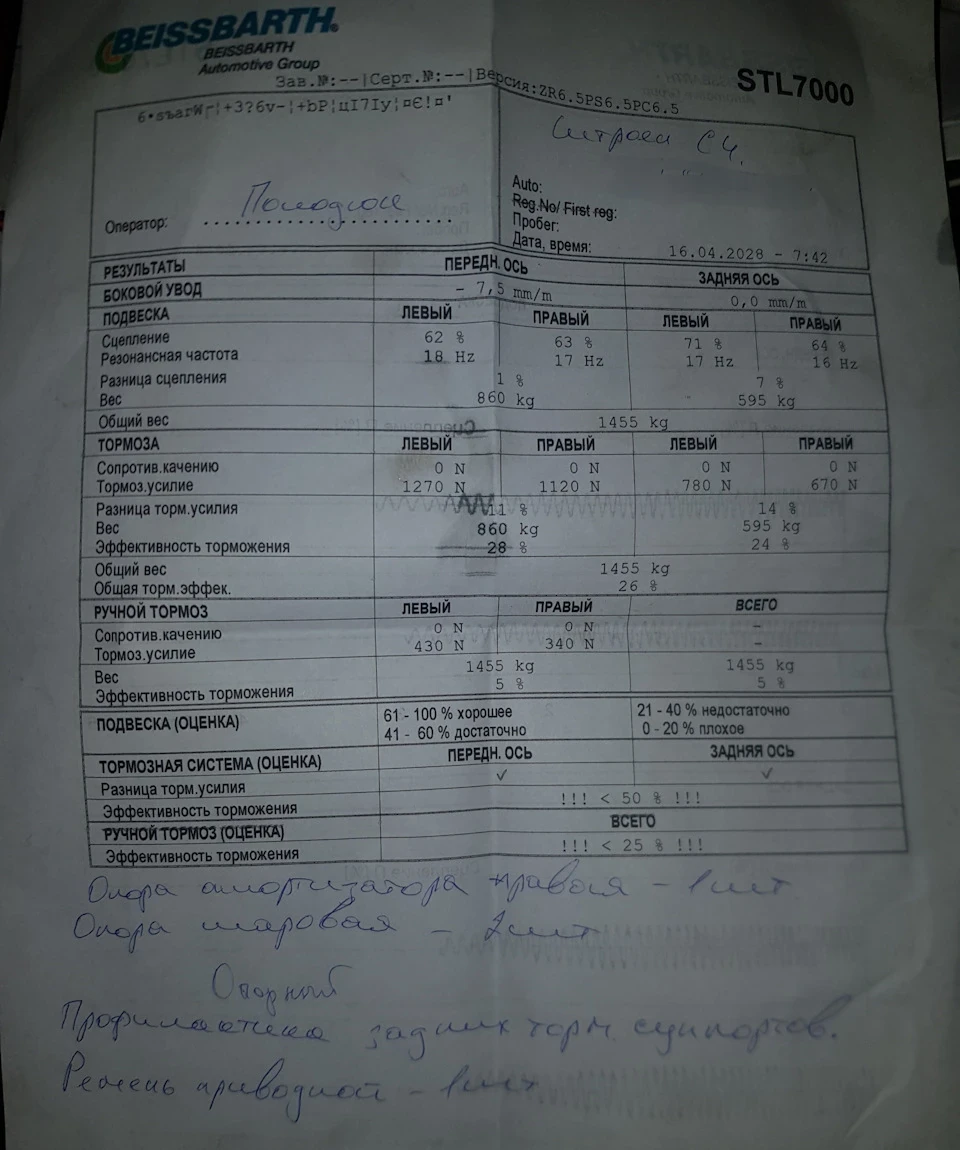 BEISSBARTH
BEISSBARTH
Automotive Group
Зав.№:--|Серт.№:--|Версия:ZR6.5PS6.5PC6.5
STL7000
Ситроен С4.
Оператор:
Auto:
Reg.No/ First reg:
Пробег:
Дата, время: 16.04.2028 - 7:42
РЕЗУЛЬТАТЫ ПЕРЕДН. ОСЬ ЗАДНЯЯ ОСЬ
БОКОВОЙ УВОД - 7,5 mm/m 0,0 mm/m
ПОДВЕСКА ЛЕВЫЙ ПРАВЫЙ ЛЕВЫЙ ПРАВЫЙ
Сцепление 62 % 63 % 71 % 64 %
Резонансная частота 18 Hz 17 Hz 17 Hz 16 Hz
Разница сцепления 1 % 7 %
Вес 860 kg 595 kg
Общий вес 1455 kg
ТОРМОЗА ЛЕВЫЙ ПРАВЫЙ ЛЕВЫЙ ПРАВЫЙ
Сопротив.качению 0 N 0 N 0 N 0 N
Тормоз.усилие 1270 N 1120 N 780 N 670 N
Разница торм.усилия 11 % 14 %
Вес 860 kg 595 kg
Эффективность торможения 28 % 24 %
Общий вес 1455 kg
Общая торм.эффек. 26 %
РУЧНОЙ ТОРМОЗ ЛЕВЫЙ ПРАВЫЙ ВСЕГО
Сопротив.качению 0 N 0 N -
Тормоз.усилие 430 N 340 N -
Вес 1455 kg 1455 kg
Эффективность торможения 5 % 5 %
ПОДВЕСКА (ОЦЕНКА) 61 - 100 % хорошее 21 - 40 % недостаточно
41 - 60 % достаточно 0 - 20 % плохое
ТОРМОЗНАЯ СИСТЕМА (ОЦЕНКА) ПЕРЕДН. ОСЬ ЗАДНЯЯ ОСЬ
Разница торм.усилия ✓ ✓
Эффективность торможения !!! < 50 % !!!
РУЧНОЙ ТОРМОЗ (ОЦЕНКА) ВСЕГО
Эффективность торможения !!! < 25 % !!!
Опора амортизатора правая - 1 шт
Опора шаровая - 2 шт
Опорный
Профилактика задних торм. суппортов.
Ремень приводной - 1 шт